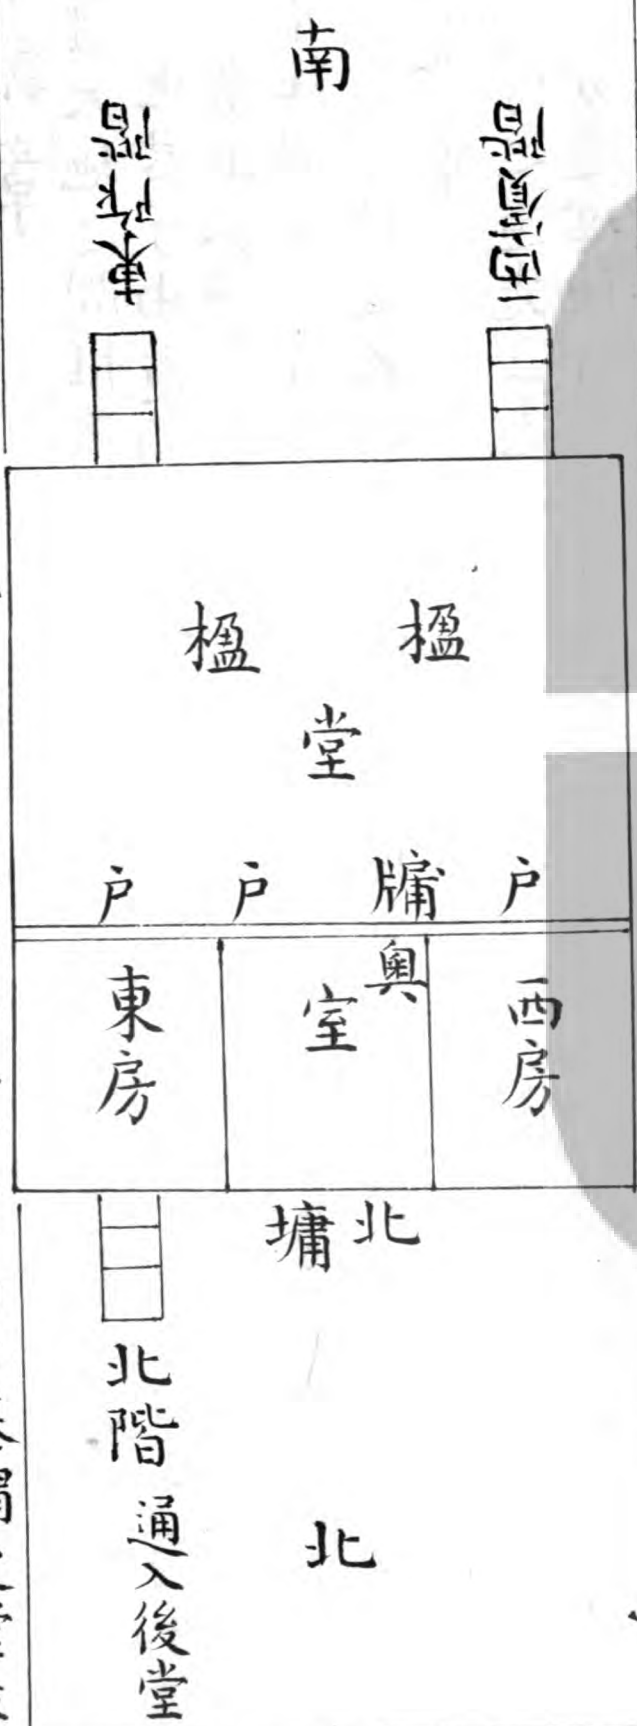 南
西賓階
東阼階
楹
楹
堂
户
牖
户
户
西房
奥
室
東房
北墉
北階
通入後堂
北